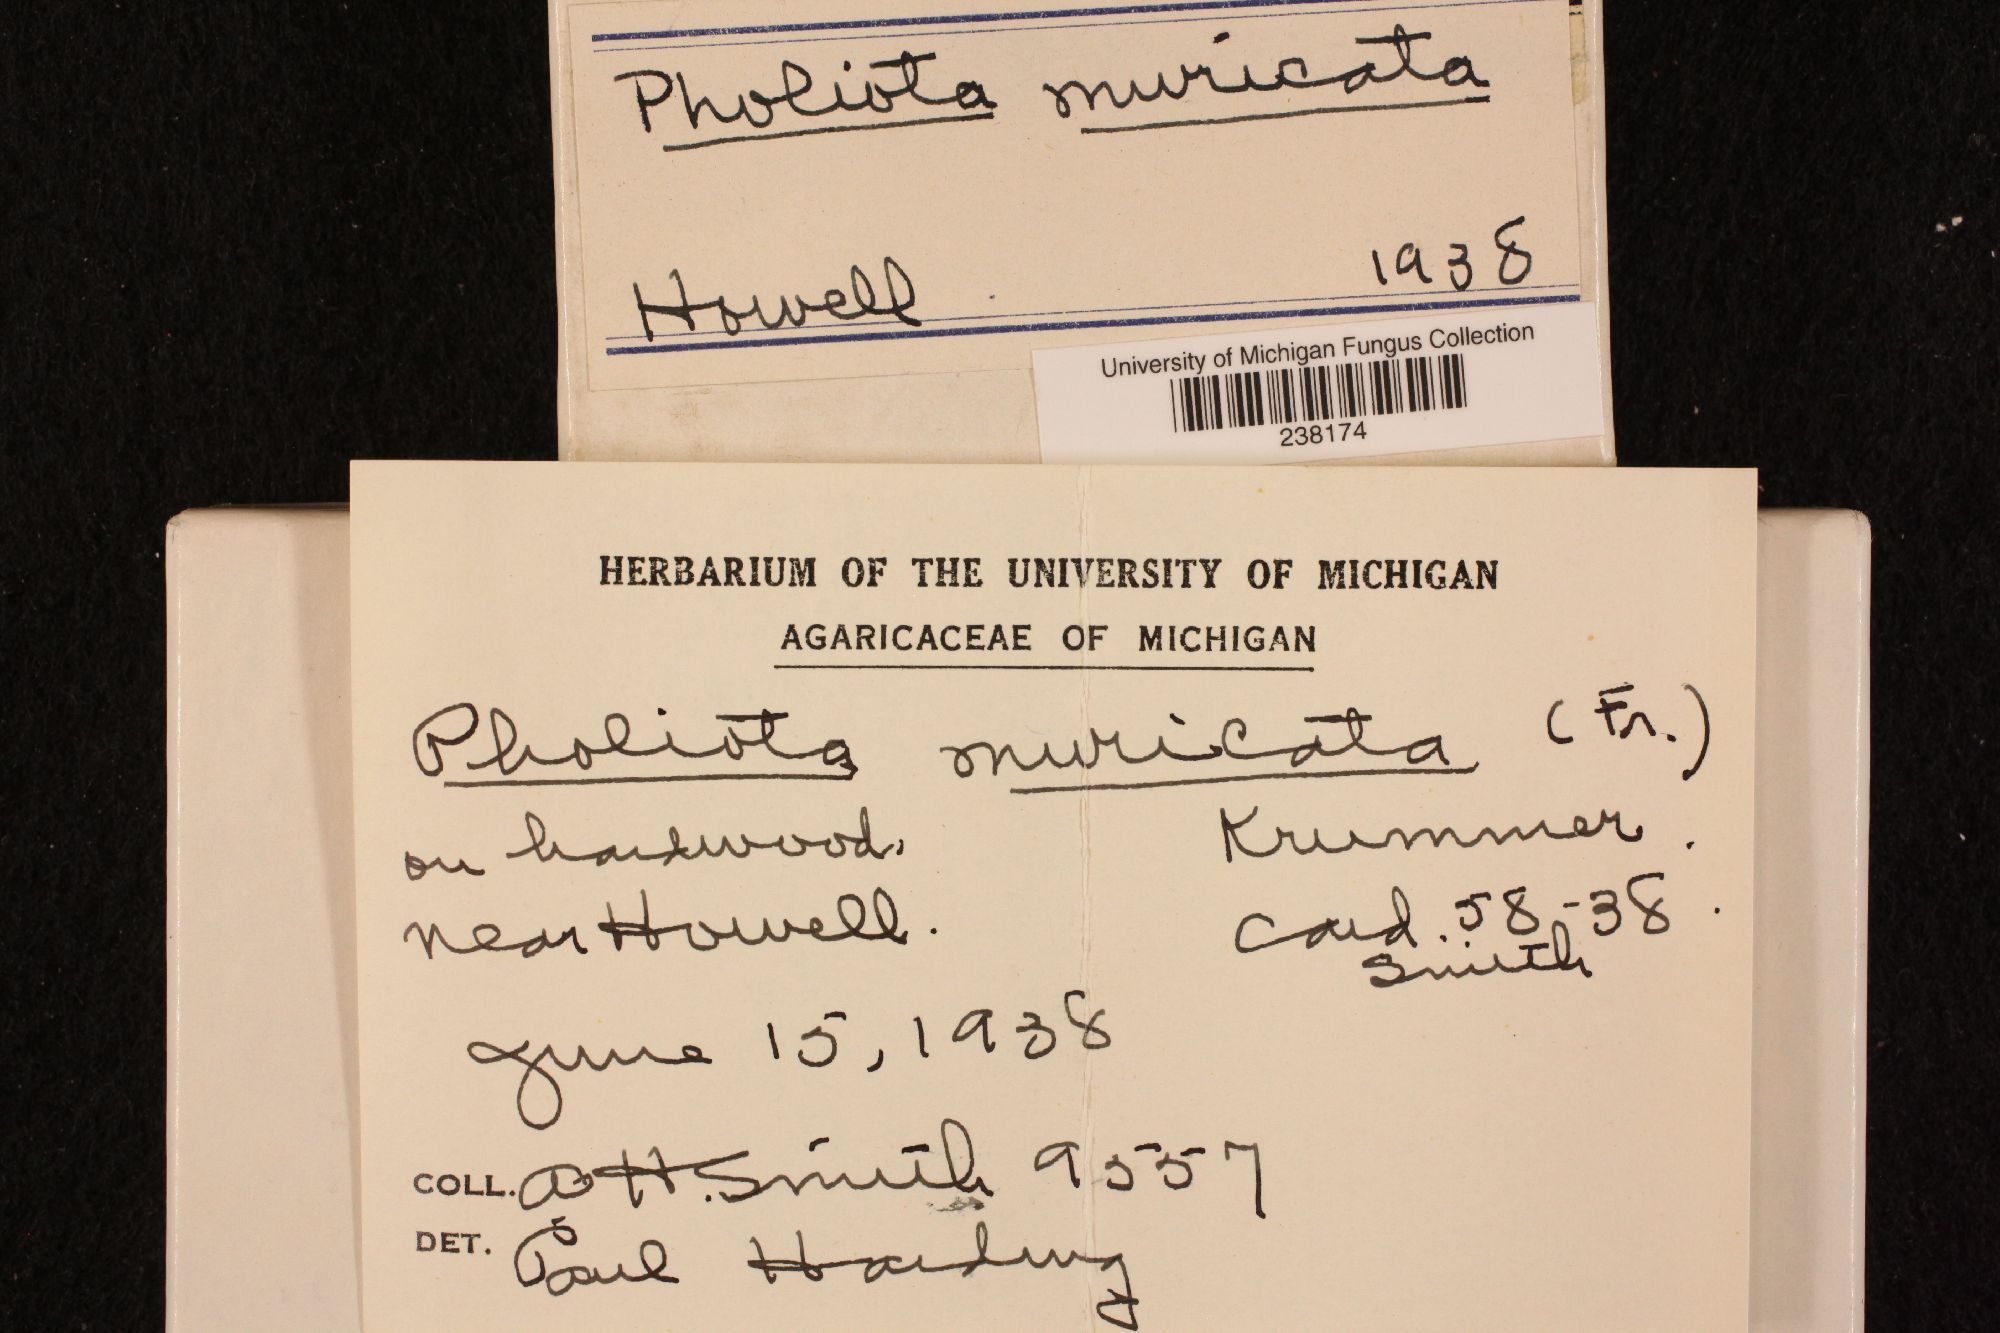 Pholiota muricata
Howell 1938
University of Michigan Fungus Collection
238174
HERBARIUM OF THE UNIVERSITY OF MICHIGAN
AGARICACEAE OF MICHIGAN
Pholiota muricata (Fr.)
on hardwood. Krummer.
near Howell. Card. 58-38.
Smith
June 15, 1938
COLL. A H. Smith 9557
DET. Paul Harding